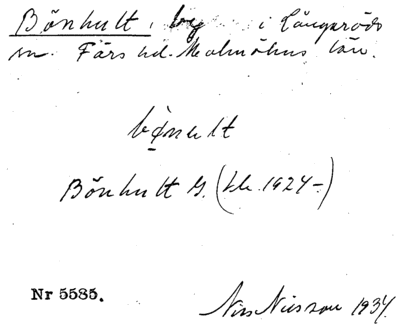 Bönhult, by i Långaröds
sn. Färs hd. Malmöhus län.
bønult
Bönhult G. (Jb. 1924–)
Nr 5585.
Nils Nilsson 1934.